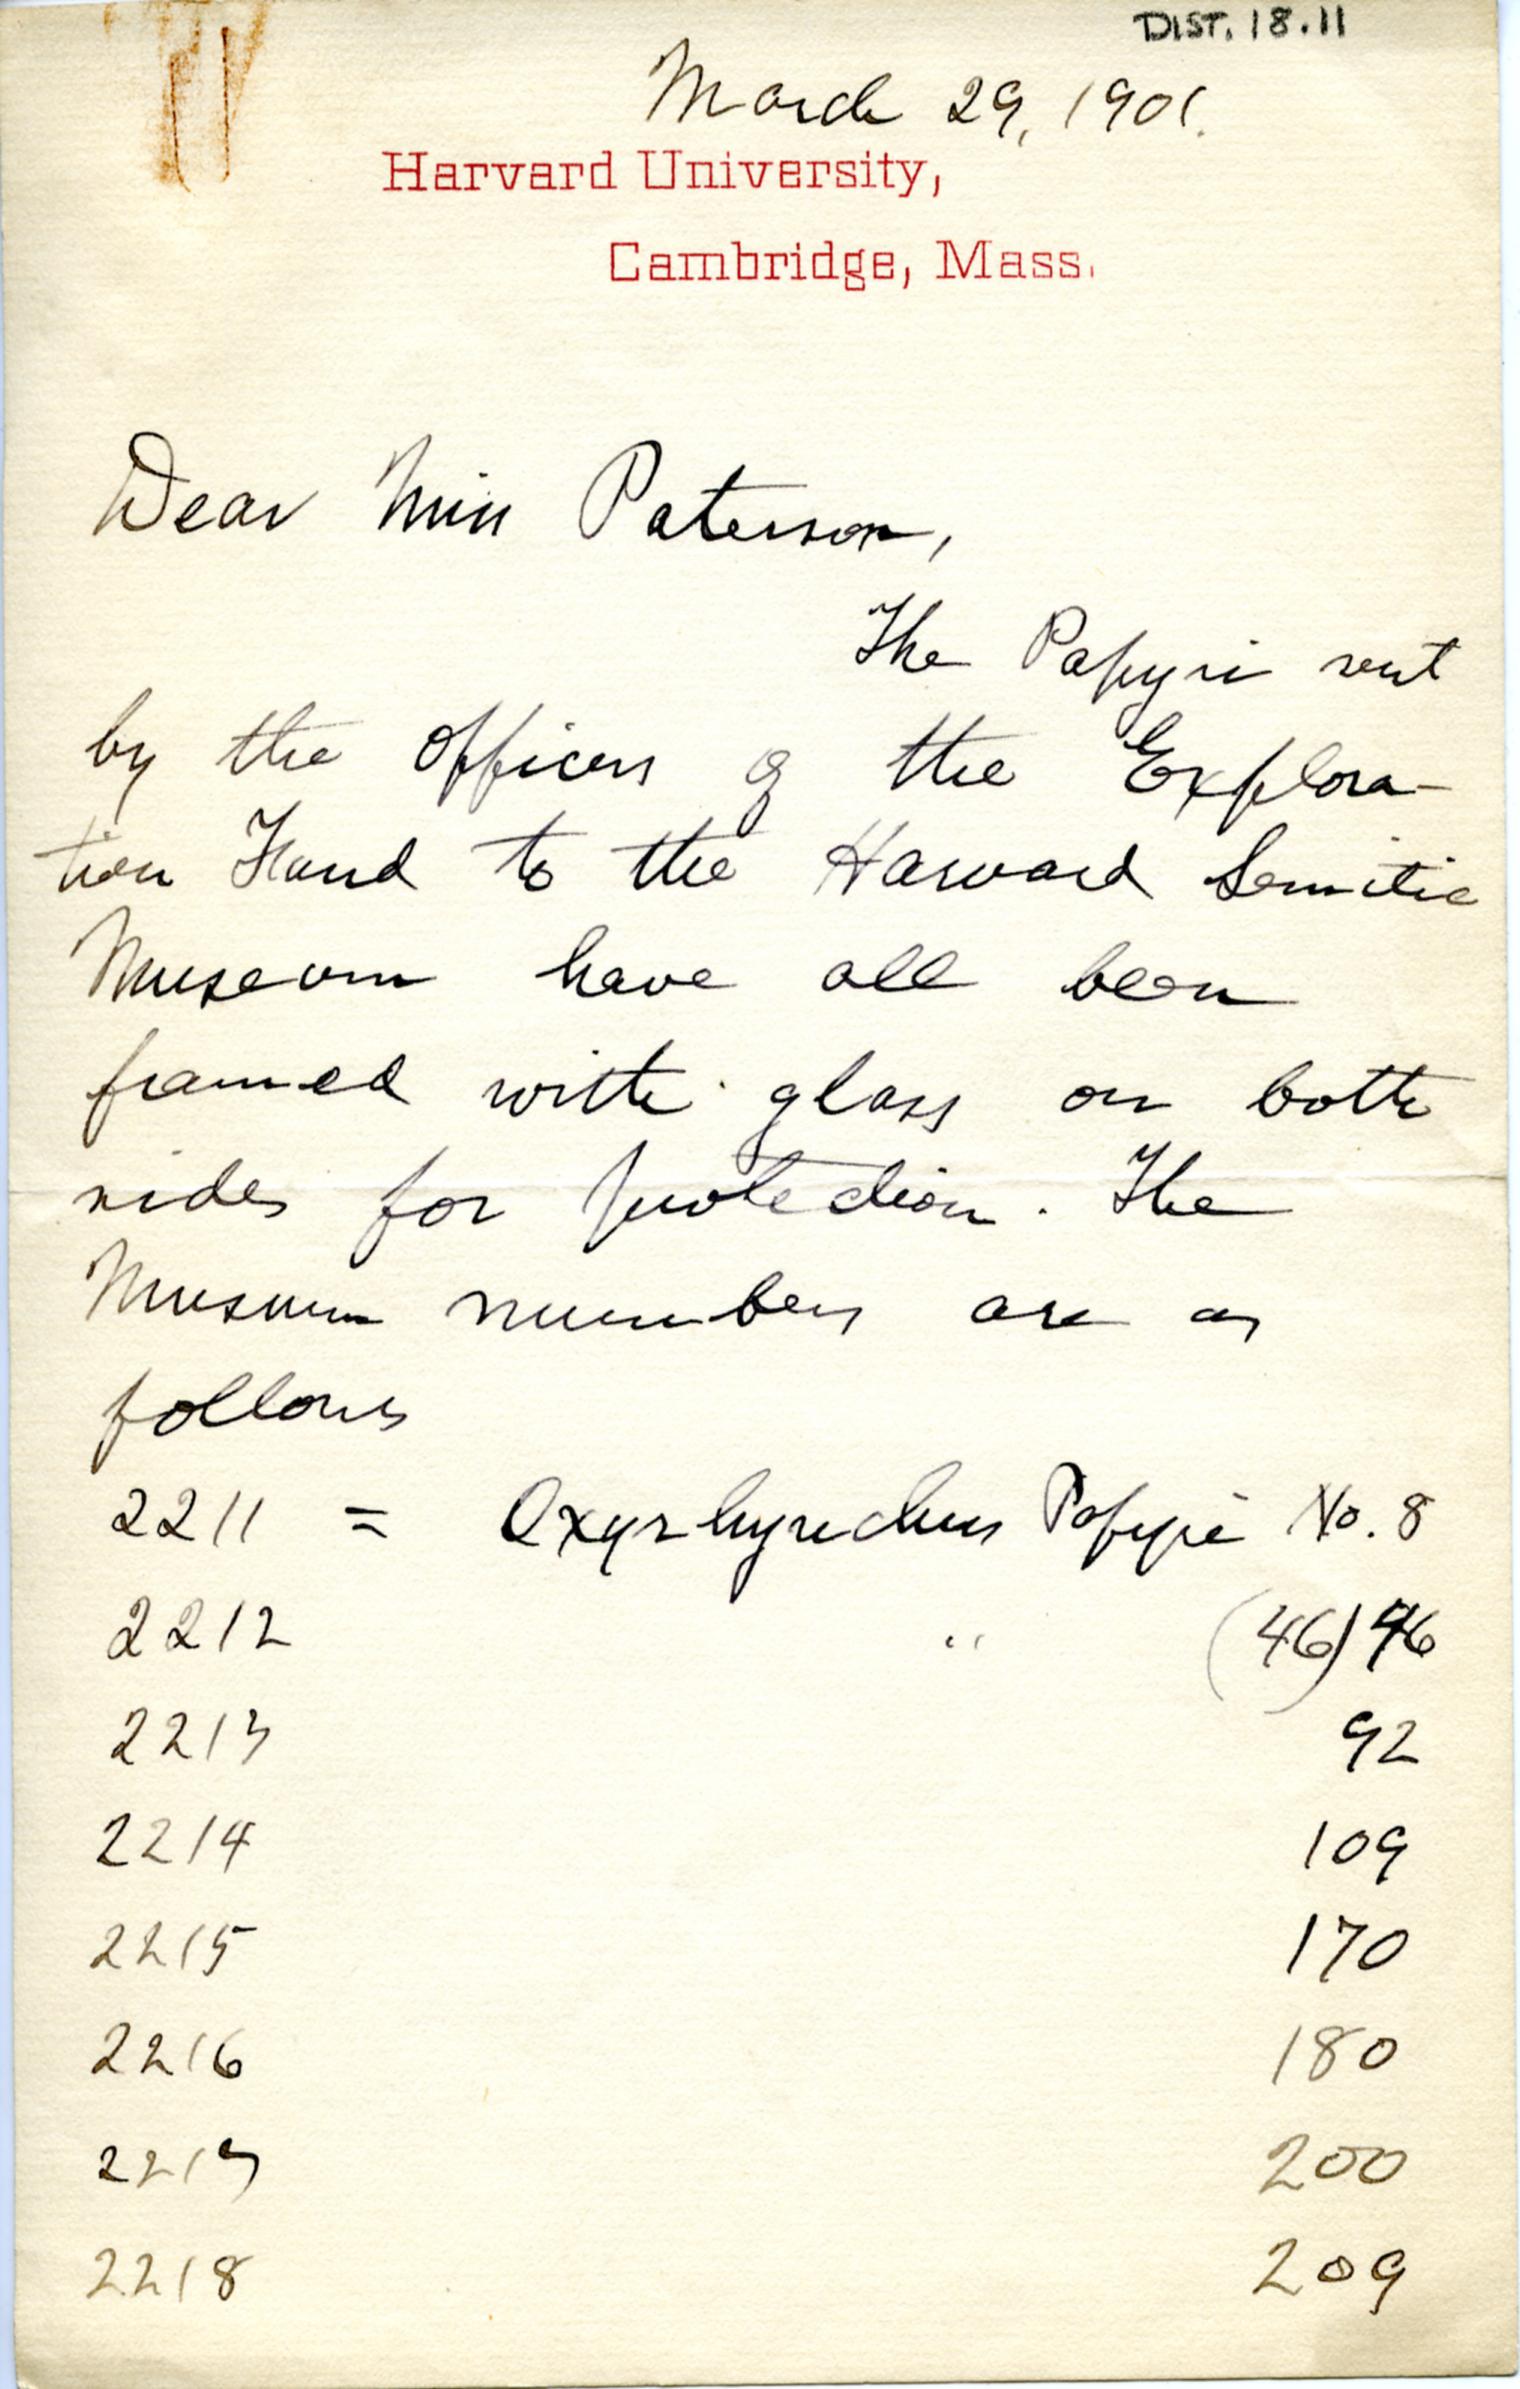 DIST. 18.11
March 29, 1901.
Harvard University,
Cambridge, Mass.
Dear Miss Paterson,
The Papyri sent
by the officers of the Explora-
tion Fund to the Harvard Semitic
Museum have all been
framed with glass on both
sides for protection. The
Museum numbers are as
follows
2211 = Oxyrhynchus Papyri No. 8
2212 " (46) 46
2213 92
2214 109
2215 170
2216 180
2217 200
2218 209